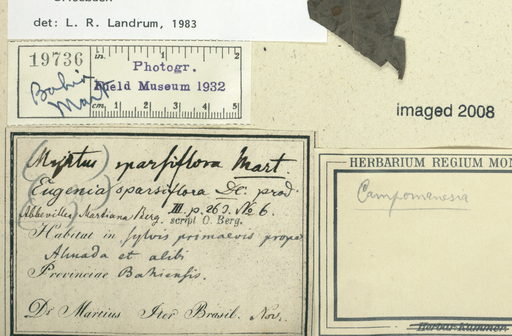 det: L. R. Landrum, 1983
19736
in. 1 2
Photogr.
Field Museum 1932
Bahia
Mart
cm 1 2 3 4 5
imaged 2008
(Myrtus) sparsiflora Mart.
Eugenia sparsiflora DC. prod.
III. p. 263. No 6.
Abbevillea Martiana Berg.
script O. Berg.
Habitat in sylvis primaevis prope
Almada et alibi
Provinciae Bahiensis.
Dr Martius Iter Brasil. Nov.
HERBARIUM REGIUM MON
Campomanesia